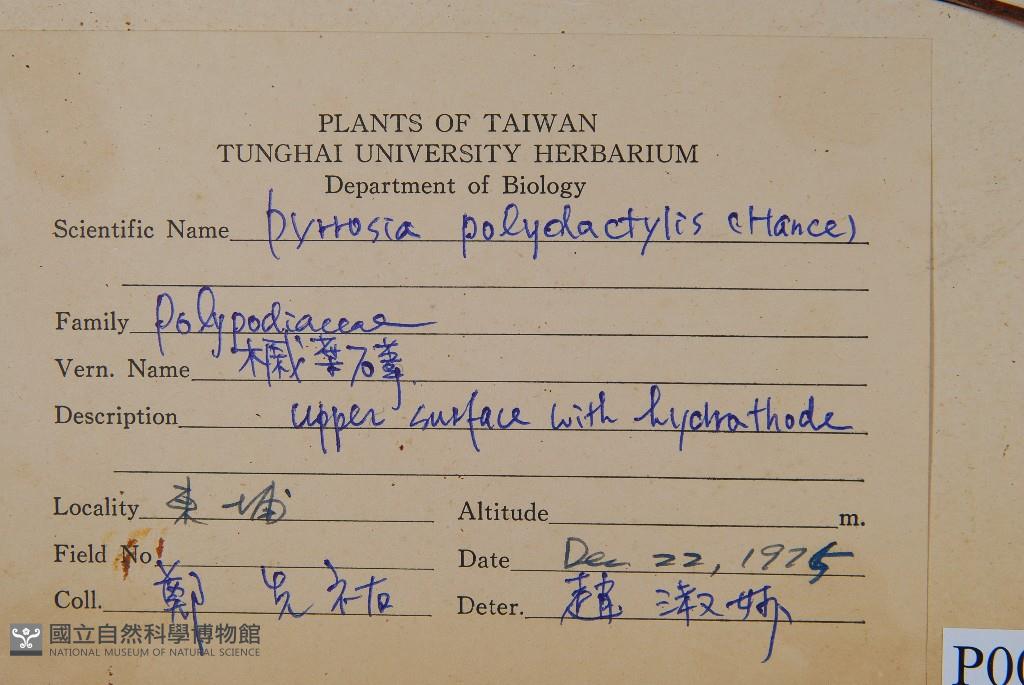 PLANTS OF TAIWAN
TUNGHAI UNIVERSITY HERBARIUM
Department of Biology
Scientific Name Pyrrosia polydactylis (Hance)
Family Polypodiaceae
Vern. Name 槭葉石葦
Description upper surface with hydrathode
Locality 東埔
Altitude m.
Field No.
Date Dec. 22, 1975
Coll. 鄭元祐
Deter. 趙淑妙
國立自然科學博物館
NATIONAL MUSEUM OF NATURAL SCIENCE
P00